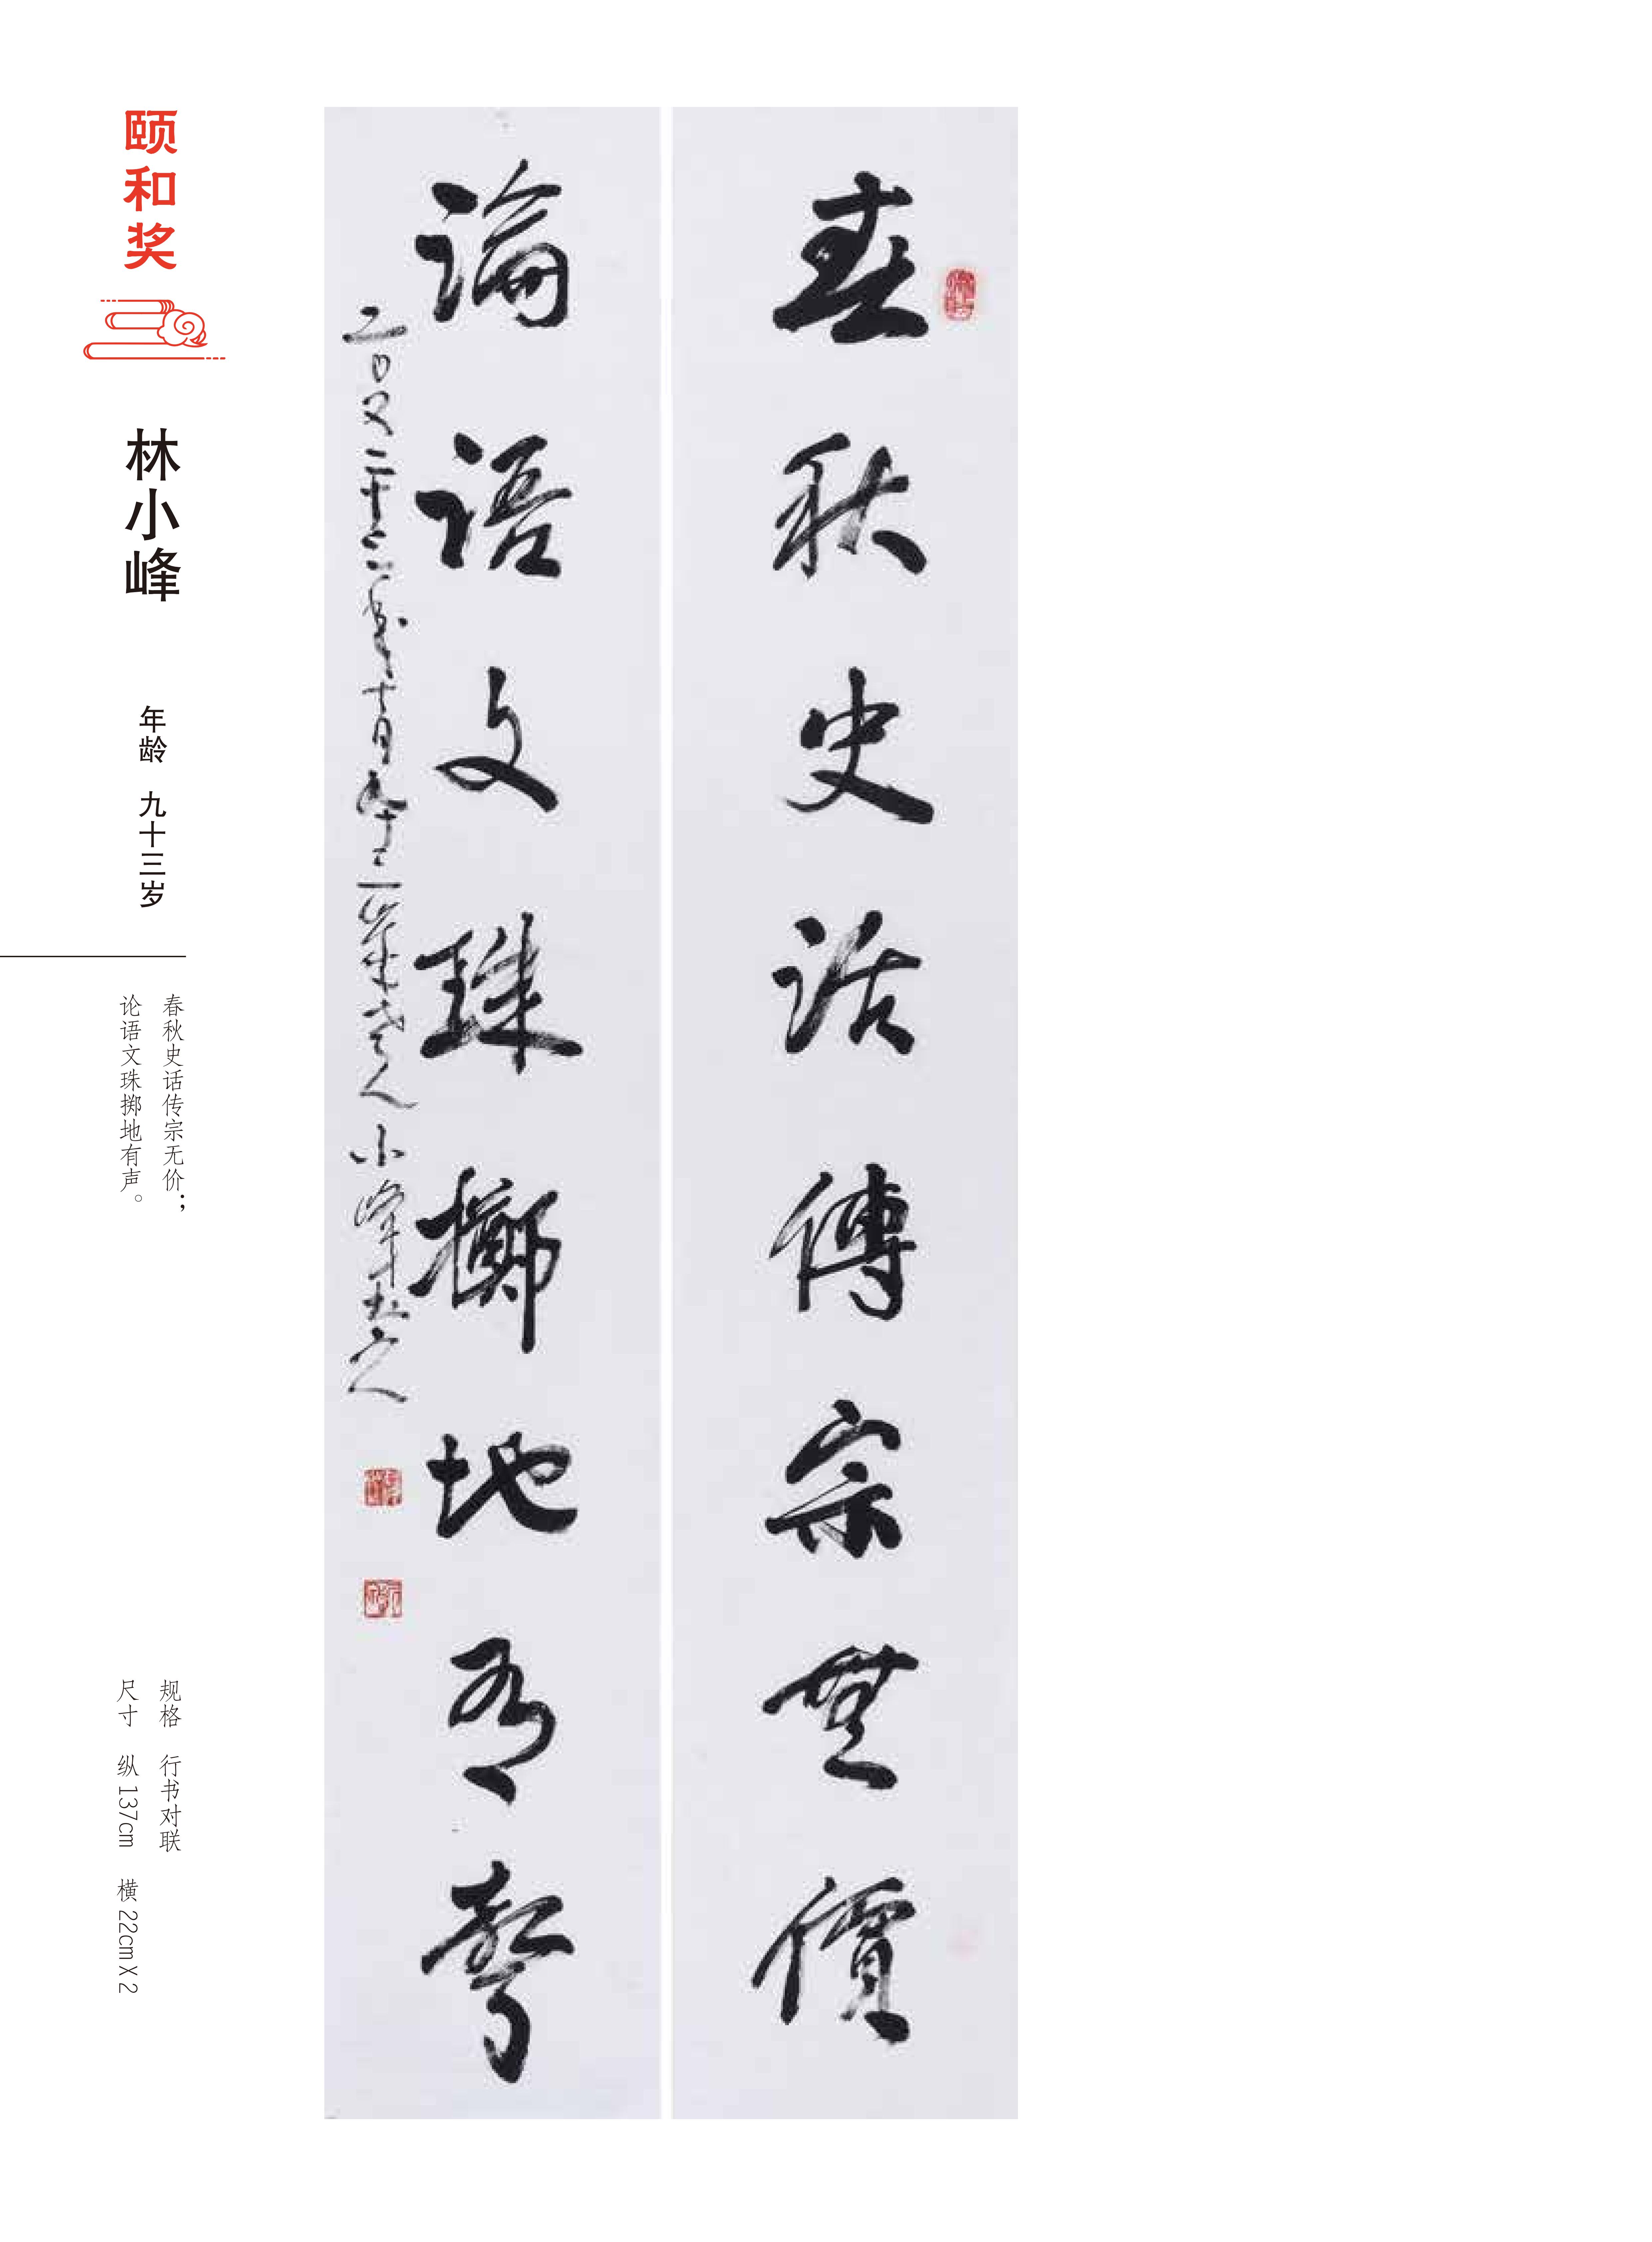 颐和奖
林小峰
年龄 九十三岁
春秋史话传宗无价；
论语文珠掷地有声。
规格 行书对联
尺寸 纵137cm 横22cmX2
春秋史话傳宗無價
論语文珠擲地有聲